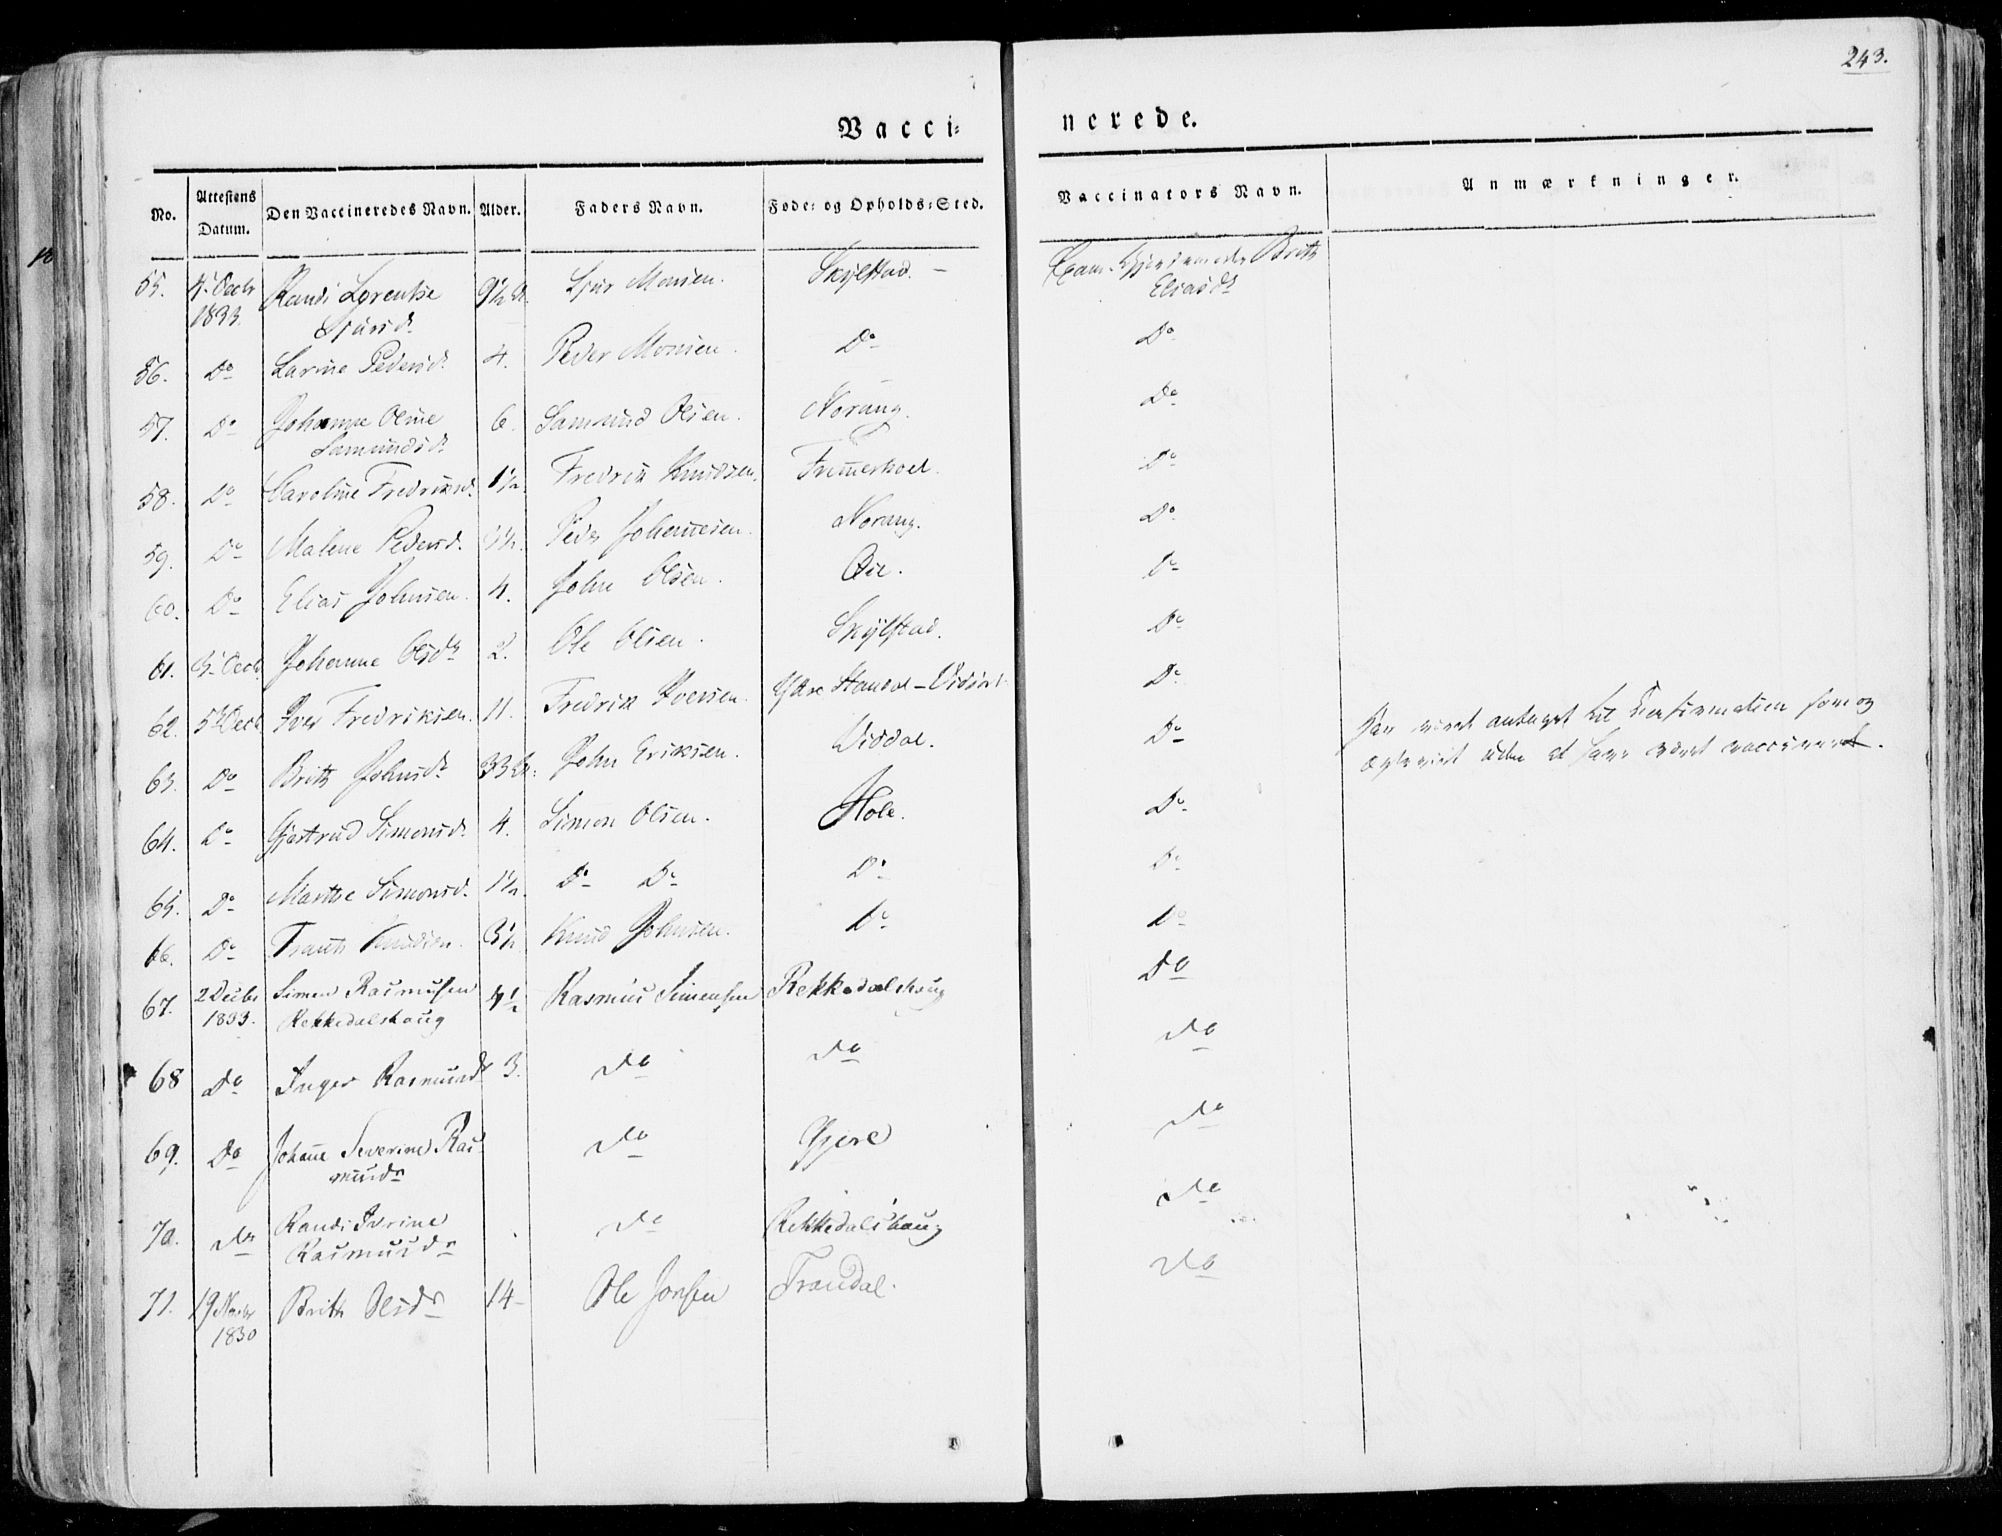 243.
Vacci=
nerede.
No. Attestens Datum. Den Vaccineredes Navn. Alder. Faders Navn. Føde= og Opholds=Sted. Vaccinators Navn. Anmærkninger.
55. Randi Lorentse Sjursd. 9½ Sjur Monsen. Skylstad. — Exam. Gjordemoder Brith
1833. Eliasdr
56. Do Larine Pedersd. 4. Peder Monsen. Do Do
57. Do Johanne Oline Samundsd. 6. Samund Olsen. Norang. Do
58. Do Caroline Fredriksd. 1½. Fredrik Knudsen. Do
59. Do Malene Pedersd. Peder Johannesen. Norang. Do
60. Do Elias Johnsen. 4. John Olsen. Øie. Do
61. Johanne Olsdr 2. Ole Olsen. Skylstad. Do
62. Iver Fredriksen. 11. Fredrik Iversen. Ytre Standal Do
63. Do Brith Johnsdr 33 John Eriksen. Viddal. Do
uden at have været vaccineret.
64. Do Gjertrud Simonsd. 4. Simon Olsen. Hole. Do
65. Do Marthe Simonsd. 1½. Do Do Do Do
66. Do Knudsen. 3½ Knud Johnsen. Do Do
67. 2 Decbr 1833. Simen Rasmussen Rekkedalshoug 4½ Rasmus Simensen Rekkedalshoug Do
68 Do Inger Rasmusdr 3. do do do
69. Do Johanne Severine Rasmusdr do Gjere do
70. do Randi Ivrine Rasmusdr do Rekkedalshoug do
71. 19 Novbr 1830 Brith Olsdr 14 – Ole Jonsen Trandal. do